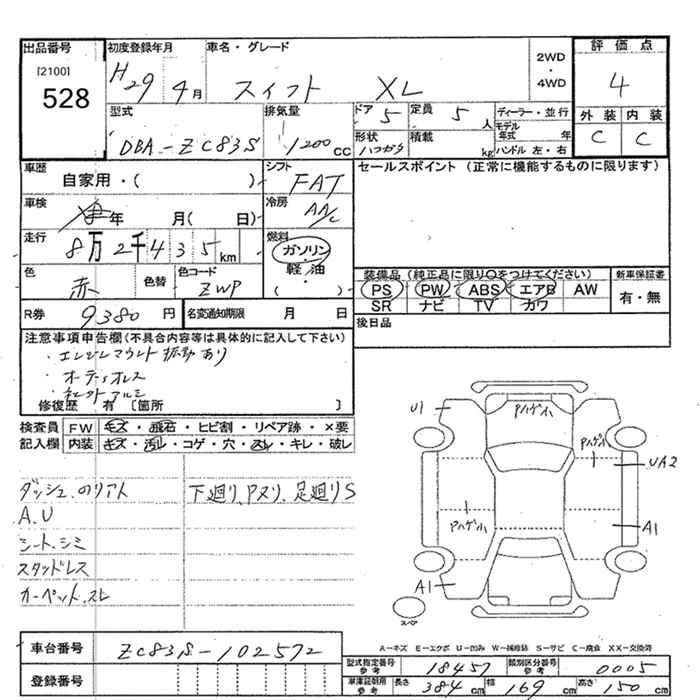 出品番号 初度登録年月 車名・グレード 評価点
[2100]
528
H29 4月 スイフト XL 2WD・4WD 4
型式 排気量 ドア 5 定員 5人 ディーラー・並行 外装 内装
DBA-ZC83S 1200cc 形状 ハコガタ 積載 kg モデル年式 年 C C
ハンドル 左・右
車歴 自家用・( ) シフト FAT セールスポイント (正常に機能するものに限ります)
車検 年 月( 日) 冷房 AA/C
走行 8万2千435km 燃料 ガソリン・軽油 ( )
色 赤 色替 色コード ZWP 装備品(純正品に限り○をつけてください) 新車保証書
PS PW ABS エアB AW 有・無
SR ナビ TV カワ
R券 9380円 名変通知期限 月 日 後日品
注意事項申告欄(不具合内容等は具体的に記入して下さい)
・エンジンマウント振動あり
・オーディオレス
・社外アルミ
修復歴 有 [箇所 ]
検査員 FW キズ・飛石・ヒビ割・リペア跡・×要
記入欄 内装 キズ・汚レ・コゲ・穴・スレ・キレ・破レ
U1 Pハゲ小 Pハゲ小 UA2
ダッシュ.のリアト 下廻り、Pヌリ、足廻りS
A.U Pハゲ小 A1
シート.シミ
スタッドレス
カーペット.スレ A1
スペア
A-キズ E-エクボ U-凹み W-補修跡 S-サビ C-腐食 XX-交換済
車台番号 ZC83S-102572
登録番号
型式指定番号 参考 18457 類別区分番号 参考 0005
車庫証明用 参考 長さ 384cm 幅 169cm 高さ 150cm